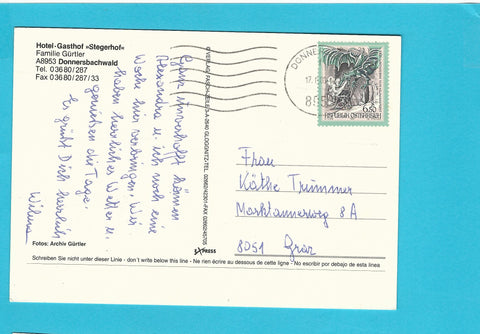 Hotel-Gasthof »Stegerhof«
Familie Gürtler
A8953 Donnersbachwald
Tel. 03680/287
Fax 03680/287/33
Ganz unverhofft können
Alexandra u. ich noch eine
Woche hier verbringen. Wir
haben herrliches Wetter u.
genießen die Tage.
Es grüßt Dich herzlich
Wilma
Fotos: Archiv Gürtler
PRESS
DONNER
6.50
REPUBLIK ÖSTERREICH
Frau
Käthe Trummer
Marktannerweg 8A
8051 Graz
Schreiben Sie nicht unter dieser Linie - don't write below this line - Ne rien écrire au dessous de cette ligne - No escribir por debajo de esta linea